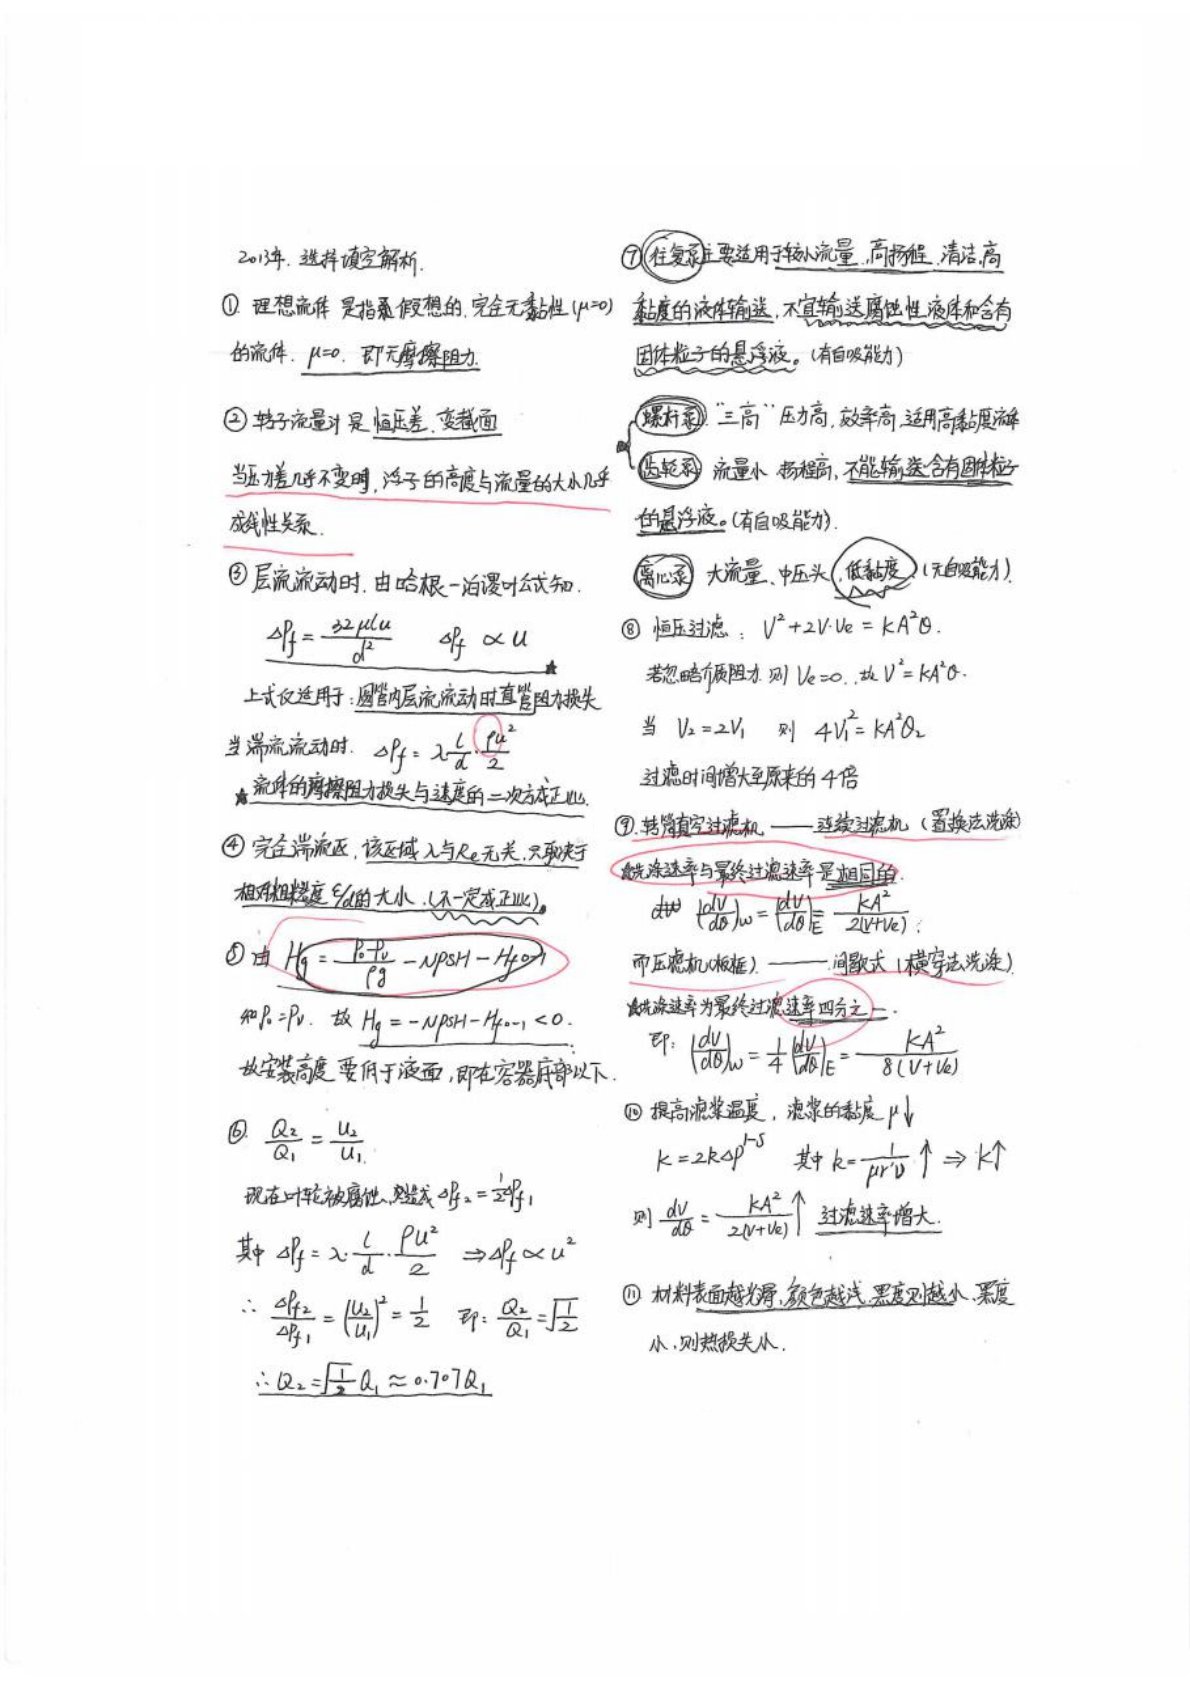 2013年. 选择填空解析.
① 理想流体 是指 假想的, 完全无黏性 (μ=0)
的流体. μ=0. 即无摩擦阻力.
② 转子流量计是恒压差、变截面
当压力差几乎不变时, 浮子的高度与流量的大小几乎
成线性关系.
③ 层流流动时, 由哈根-泊谡叶公式知.
ΔPf = 32μlu/d² ΔPf ∝ u
上式仅适用于: 圆管内层流流动时直管阻力损失
当湍流流动时. ΔPf = λ·l/d·ρu²/2
★ 流体的摩擦阻力损失与速度的二次方成正比.
④ 完全湍流区, 该区域λ与Re无关, 只取决于
相对粗糙度 ε/d的大小. (不一定成正比).
⑤ 由 Hg = (P₀-Pv)/ρg - NPSH - Hf0-1
和P₀=Pv. 故 Hg = -NPSH - Hf0-1 < 0.
故安装高度要低于液面, 即在容器底部以下.
⑥. Q₂/Q₁ = u₂/u₁.
现在叶轮被腐蚀, 造成 ΔPf₂ = ½ΔPf₁
其中 ΔPf = λ·l/d·ρu²/2 ⇒ ΔPf ∝ u²
∴ ΔPf₂/ΔPf₁ = (u₂/u₁)² = 1/2 即: Q₂/Q₁ = √(1/2)
∴ Q₂ = √(1/2) Q₁ ≈ 0.707Q₁
⑦ 往复泵主要适用于较小流量, 高扬程, 清洁, 高
黏度的液体输送, 不宜输送腐蚀性液体和含有
固体粒子的悬浮液。(有自吸能力)
螺杆泵 "三高" 压力高, 效率高, 适用高黏度液体
齿轮泵 流量小 扬程高, 不能输送含有固体粒子
的悬浮液。(有自吸能力).
离心泵 大流量、中压头, 低黏度 (无自吸能力).
⑧ 恒压过滤: V²+2V·Ve = KA²θ.
若忽略介质阻力. 则 Ve=0. 故 V²=KA²θ.
当 V₂=2V₁ 则 4V₁²=KA²θ₂
过滤时间增大至原来的4倍
⑨. 转筒真空过滤机 —— 连续过滤机 (置换法洗涤)
洗涤速率与最终过滤速率是相同的.
(dV/dθ)w = (dV/dθ)E = KA²/2(V+Ve);
而压滤机(板框) —— 间歇式 (横穿法洗涤).
洗涤速率为最终过滤速率四分之一.
即: (dV/dθ)w = 1/4 (dV/dθ)E = KA²/8(V+Ve)
⑩ 提高滤浆温度, 滤浆的黏度μ↓
K=2kΔp^(1-s) 其中 k=1/μr'υ ↑ ⇒ K↑
则 dV/dθ = KA²/2(V+Ve) ↑ 过滤速率增大.
⑪ 材料表面越光滑, 颜色越浅, 黑度则越小, 黑度
小, 则热损失小.